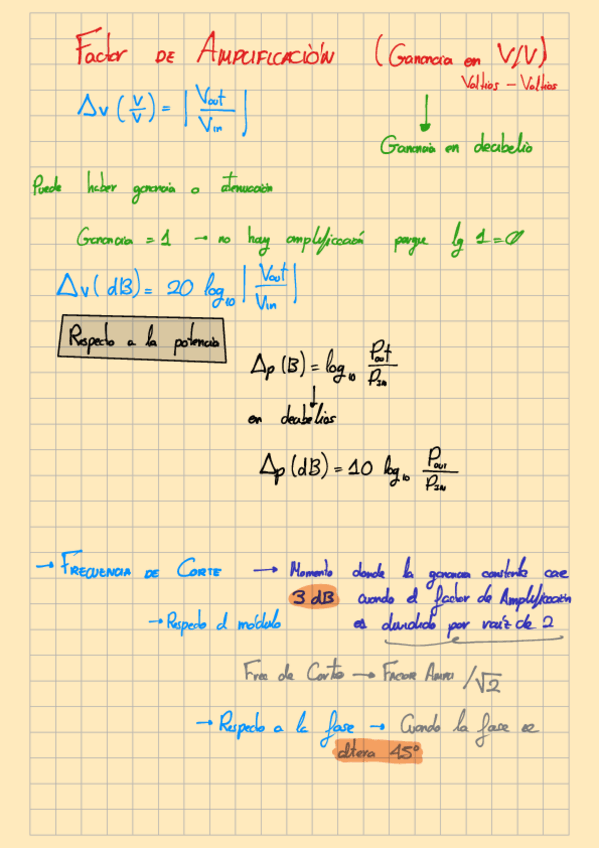 Factor DE AMPLIFICACIÓN (Ganancia en V/V)
Voltios - Voltios
Δv (V/V) = |Vout/Vin|
↓
Ganancia en decibelio
Puede haber ganancia o atenuación
Ganancia = 1 → no hay amplificación porque lg 1 = 0
Δv (dB) = 20 log₁₀ |Vout/Vin|
Respecto a la potencia
Δp (B) = log₁₀ Pout/PIN
↓
en decibelios
Δp (dB) = 10 log₁₀ Pout/PIN
→ FRECUENCIA DE CORTE → Momento donde la ganancia constante cae
3 dB cuando el factor de Amplificación
→ Respecto al módulo es dividido por raíz de 2
Frec de Corte → FACTOR AMPLI /√2
→ Respecto a la fase → Cuando la fase se
altera 45°